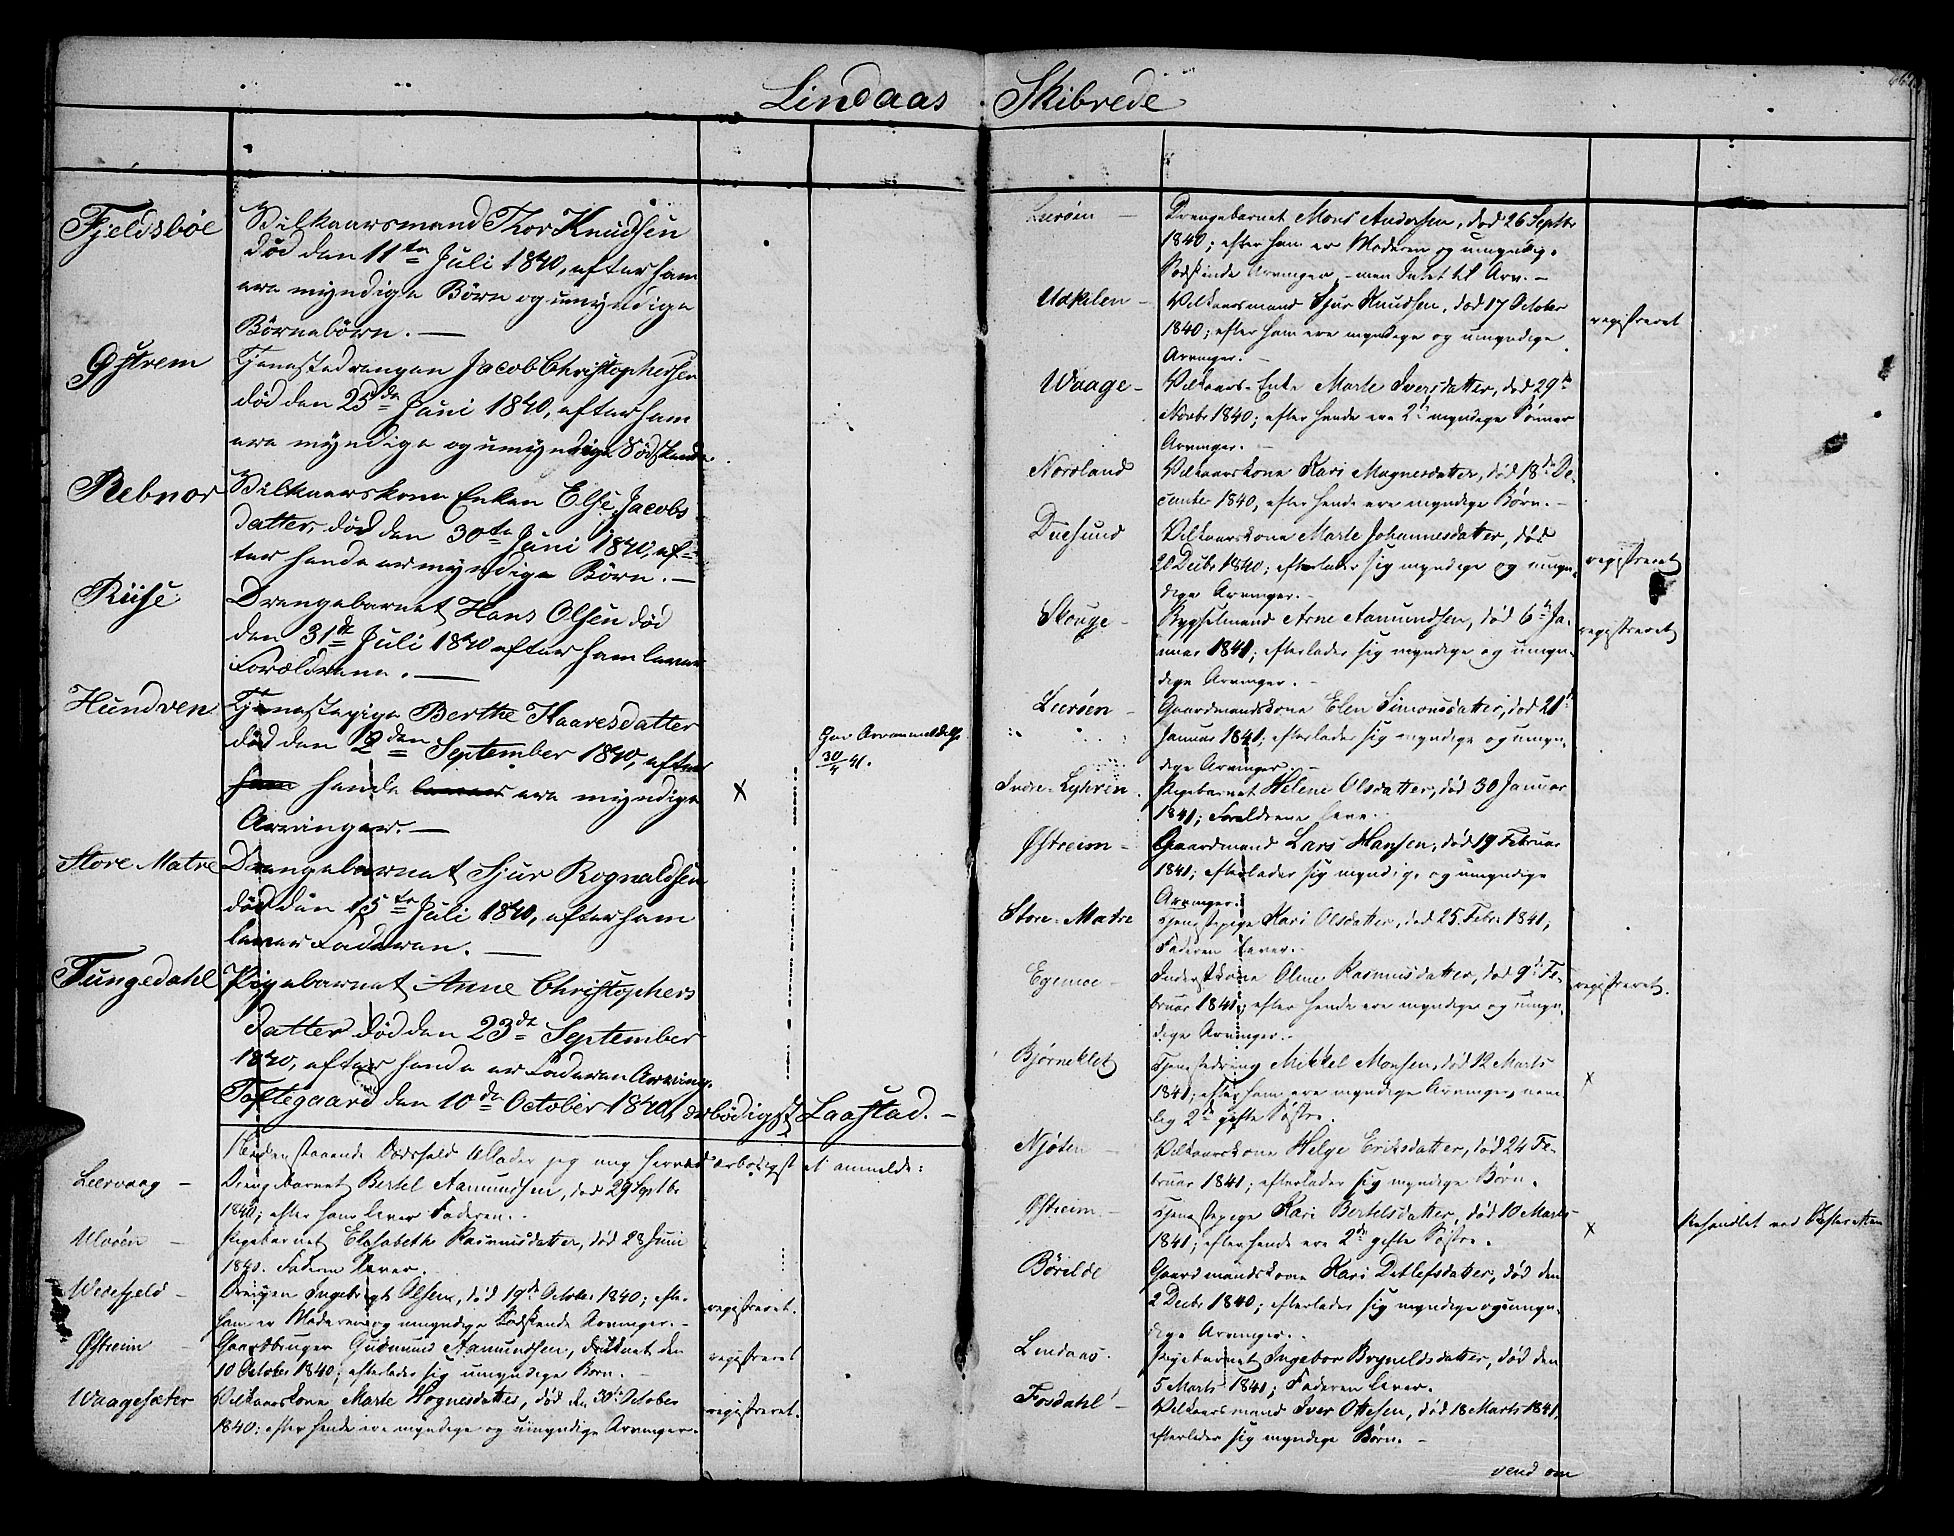 Lindaas Skibrede
Fjeldsbøe
Vilkaarsmand Thor Knudsen
død den 11te Juli 1840, efter ham
ere myndige Børn og umyndige
Børnebørn. —
Østrem
Tjenestedrengen Jacob Christophersen
død den 25de Juni 1840, efter ham
ere myndige og umyndige Sødskende
Rebnor
Vilkaarskone Enken Else Jacobs
datter, død den 30te Juni 1840, ef-
ter hende er myndige Børn. —
Riise
Drengebarnet Hans Olsen død
den 31de Juli 1840 efter ham lever
Forældrene. —
Hundven
Tjenestepige Berthe Kaaresdatter
død den September 1840, efter
ham hende lever ere myndige
Arvinger. —
x
30/4 41.
Store Matre
Drengebarnet Sjur Rognaldsen
død den 15te Juli 1840, efter ham
lever Faderen. —
Tungedahl
Pigebarnet Anne Christophers
datter død den 23de September
1840, efter hende er Faderen Arving.
Toftegaard den 10de October 1840, ærbødigst Laastad. —
Nedenstaaende Dødsfald jeg mig herved ærbødigst at anmelde:
Leervaag —
Drengebarnet Bertel Aamundsen, død 29 Septbr
1840; efter ham lever Faderen.
Ulvøen —
Pigebarnet Elisabeth Rasmusdatter, død 28 Juni
1840. Faderen lever.
Wedefjeld —
Drengen Ingebrigt Olsen, død 19de October 1840; efter
ham er Moderen og umyndige Sødskende Arvinger. —
registreret.
Østreim —
Gaardbruger Gudmund Aamundsen, druknet den
10 October 1840; efterlader sig umyndige Børn. —
registreres
Waagesæter
Vilkaarskone Marte Hognesdatter, død den 30te October
1840; efter hende ere myndige og umyndige Arvinger. —
registreret.
Lurøen —
Drengebarnet Mons Andersen, død 26 Septbr
1840; efter ham er Moderen og umyndige
Sødskende Arvinger, — men Intet til Arv. —
Udkilen —
Vilkaarsmand Sjur Knudsen, død 17 October
1840; efter ham ere myndige og umyndige
Arvinger. —
registreret
Waage —
Vilkaars-Enke Marte Iversdatter, død 29de
Novbr 1840; efter hende ere 2de myndige Sønner
Arvinger. —
Nordland
Vilkaarskone Kari Magnesdatter, død 18de De-
cember 1840, efter hende ere myndige Børn. —
Duesund
Vilkaarskone Marte Johannesdatter, død
20 Decbr 1840; efterlader sig myndige og umyn-
dige Arvinger. —
registreret
Skouge —
Bygselmand Arne Aamundsen, død 6te Ja-
nuar 1841; efterlader sig myndige og umyn-
dige Arvinger. —
registreret
Lurøen —
Gaardmandskone Elen Simonsdatter, død 21de
Januar 1841; efterlader sig myndige og umyn-
dige Arvinger. —
Indre-
Pigebarnet Helene Olsdatter, død 30 Januar
1841; Forældrene leve.
Østreim —
Gaardmand Lars Hansen, død 19 Februar
1841; efterlader sig myndige og umyndige
Arvinger.
Store-Matre
Tjenestepige Kari Olsdatter, død 25. Febr 1841;
Faderen lever.
Egenæs —
Inderstkone Rasmusdatter, død 9de Fe-
bruar 1841; efter hende ere myndige og umyn-
dige Arvinger. —
registreret.
Bjørneklet
Tjenestedreng Mikkel Monsen, død 12 Marts
1841; efter ham ere myndige Arvinger, nem-
lig 2de gifte Søstre.
x
Njøten —
Vilkaarskone Helge Eriksdatter, død 24 Fe-
bruar 1841; efterlader sig myndige Børn.
Østreim —
Tjenestepige Kari Bertelsdatter, død 10 Marts
1841; efter hende ere 2de gifte Søstre.
x
Behandlet ved Skifteretten
Børilde
Gaardmandskone Kari Detlefsdatter, død den
2 Decbr 1840; efterlader sig myndige og umyn-
dige Arvinger. —
Lindaas.
Pigebarnet Ingebor Brynildsdatter, død den
5 Marts 1841; Faderen lever.
Fosdahl —
Vilkaarsmand Iver Ottesen, død 18 Marts 1841,
efterlader sig myndige Børn. —
vend om